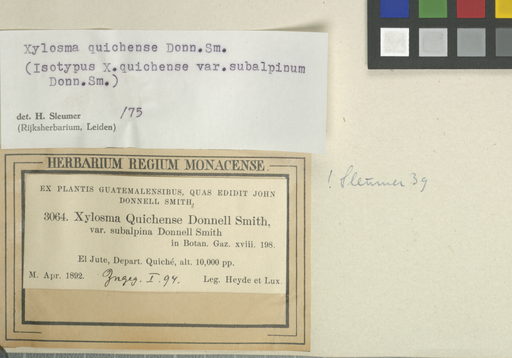 Xylosma quichense Donn.Sm.
(Isotypus X.quichense var.subalpinum
Donn.Sm.)
det. H. Sleumer /75
(Rijksherbarium, Leiden)
HERBARIUM REGIUM MONACENSE.
EX PLANTIS GUATEMALENSIBUS, QUAS EDIDIT JOHN
DONNELL SMITH,
3064. Xylosma Quichense Donnell Smith,
var. subalpina Donnell Smith
in Botan. Gaz. xviii. 198.
El Jute, Depart. Quiché, alt. 10,000 pp.
M. Apr. 1892. I. 94. Leg. Heyde et Lux.
! Sleumer 39